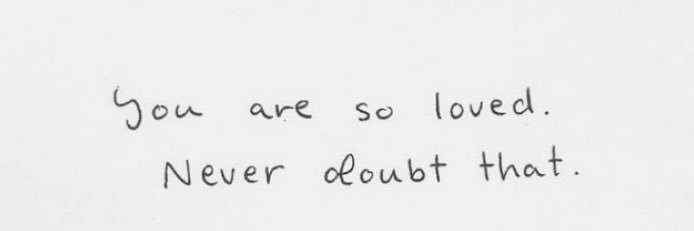 You are so loved.
Never doubt that.